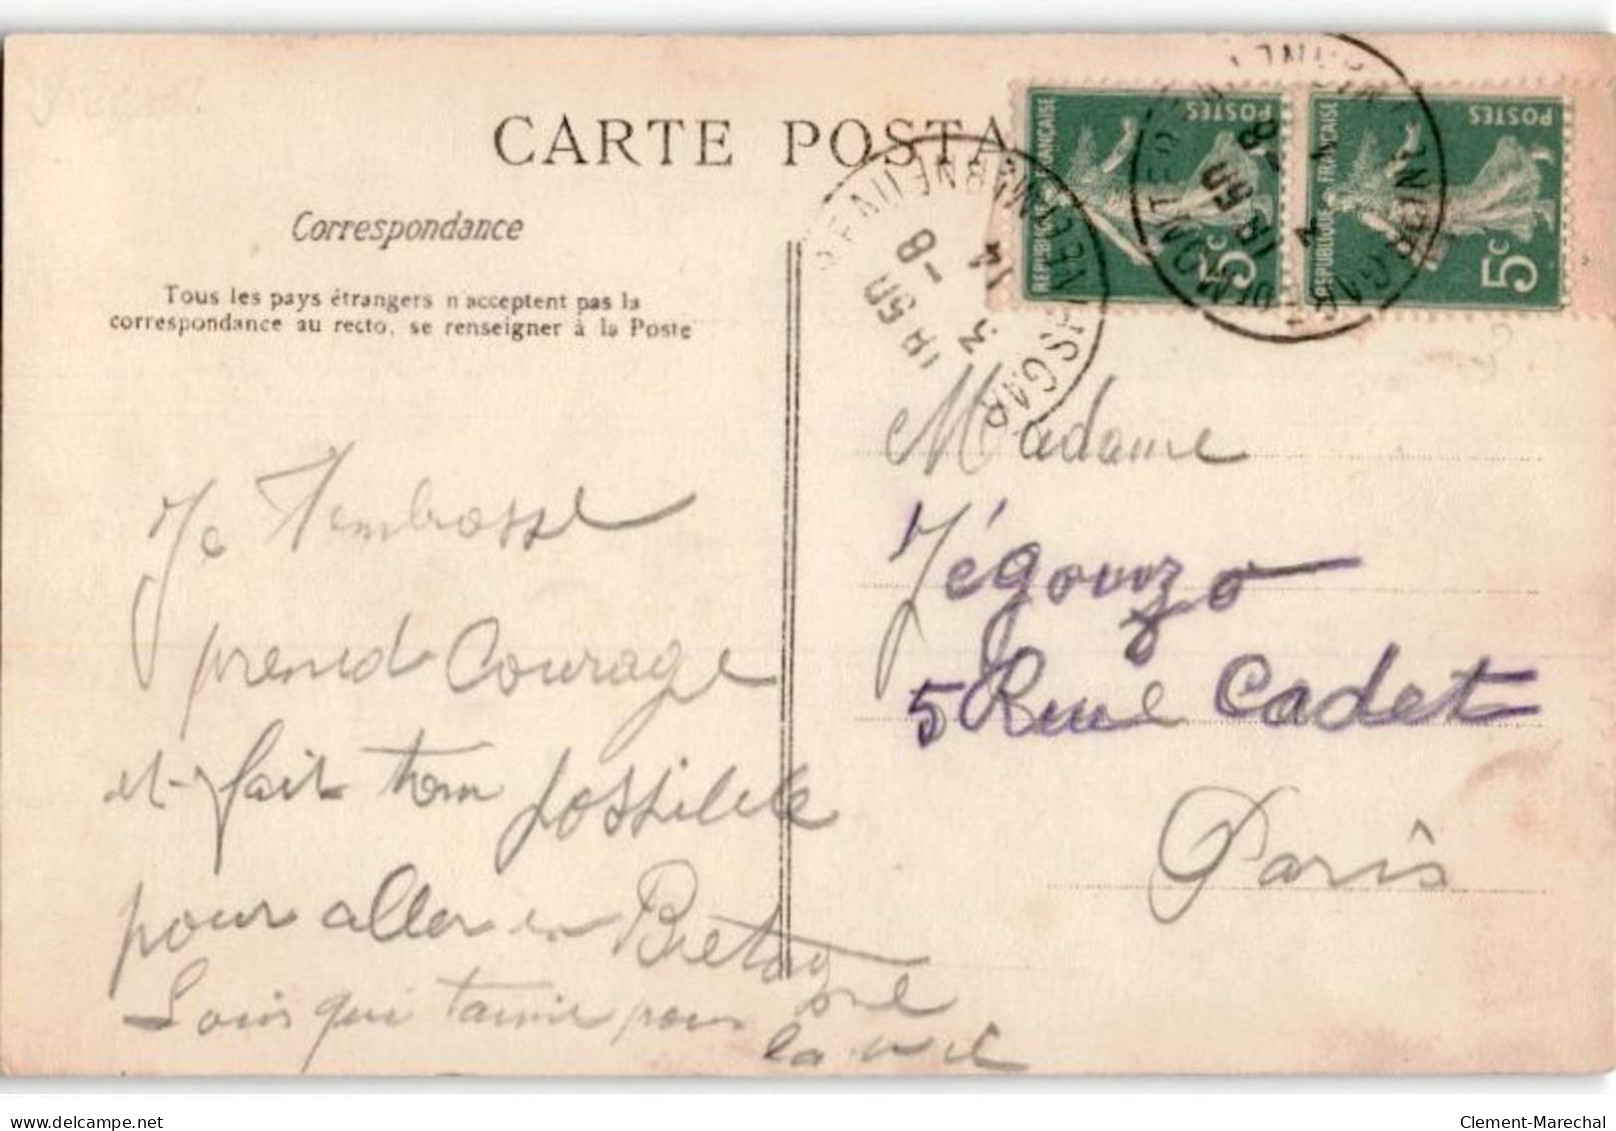 CARTE POSTA
Correspondance
Tous les pays étrangers n'acceptent pas la
correspondance au recto, se renseigner à la Poste
REPUBLIQUE FRANÇAISE
POSTES
5c
REPUBLIQUE FRANÇAISE
POSTES
5c
18 50
3 -8
14
18 50
3 -8
Madame
Jégouzo
5 Rue Cadet
Paris
Je t'embrasse
prend Courage
et fait ton possible
pour aller en Bretagne
Louis qui t'aime pour
la vie
delcampe.net
Clement-Marechal